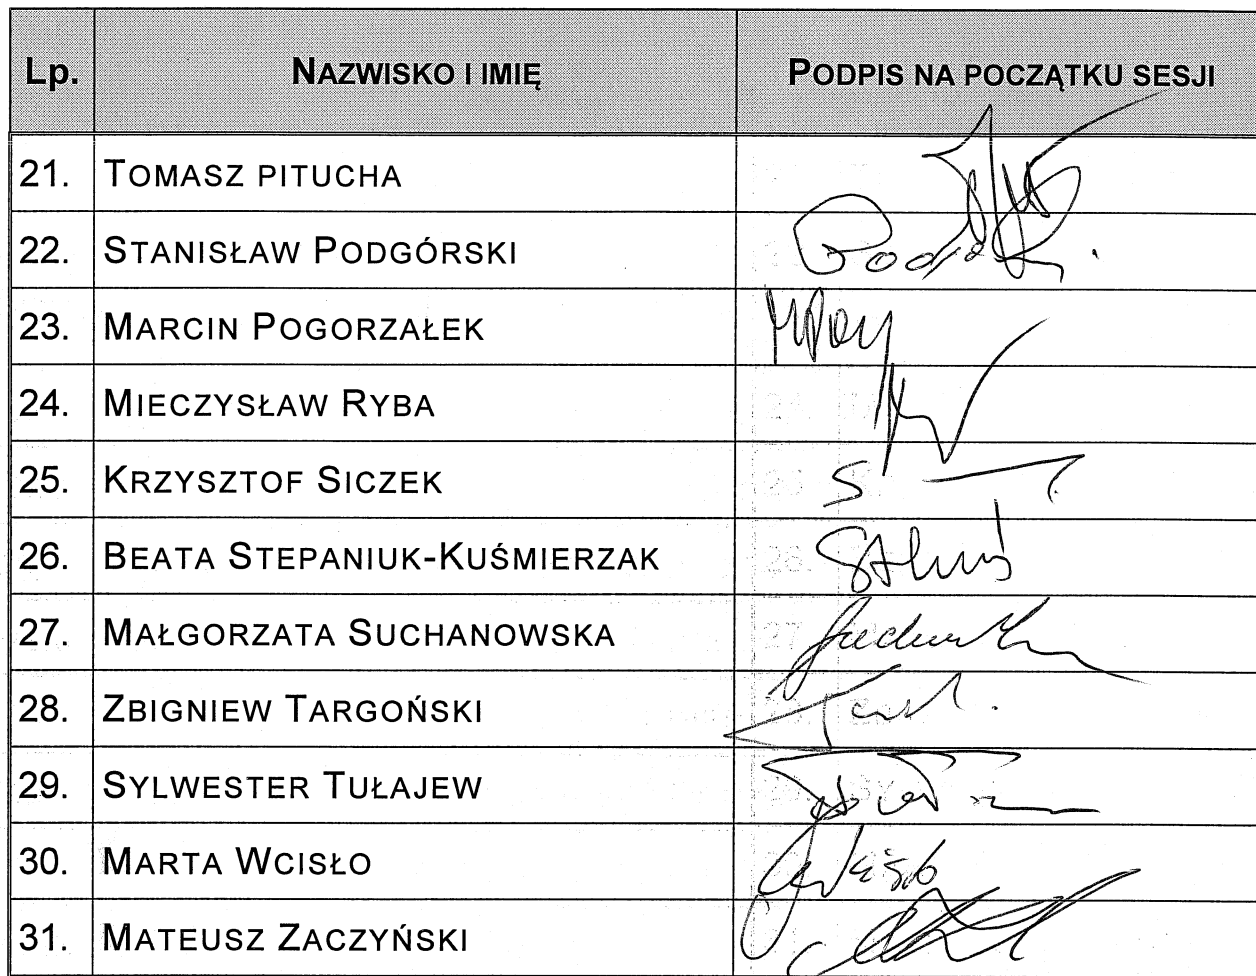 Lp. NAZWISKO I IMIĘ PODPIS NA POCZĄTKU SESJI
21. TOMASZ PITUCHA
22. STANISŁAW PODGÓRSKI
23. MARCIN POGORZAŁEK
24. MIECZYSŁAW RYBA
25. KRZYSZTOF SICZEK
26. BEATA STEPANIUK-KUŚMIERZAK
27. MAŁGORZATA SUCHANOWSKA
28. ZBIGNIEW TARGOŃSKI
29. SYLWESTER TUŁAJEW
30. MARTA WCISŁO
31. MATEUSZ ZACZYŃSKI